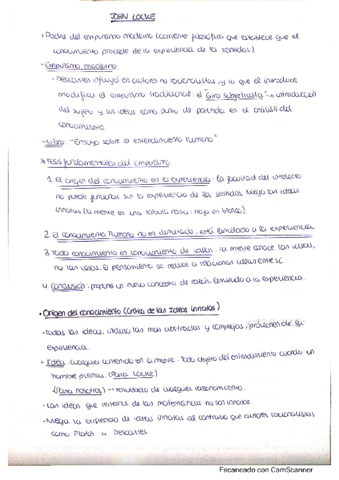 JOHN LOCKE
· Padre del empirismo moderno (corriente filosófica que establece que el
conocimiento procede de la experiencia de los sentidos).
· Empirismo moderno:
- Descartes influyó en autores no racionalistas y lo que él introduce
modifica el empirismo tradicional: el "Giro Subjetivista" → introducción
del sujeto y sus ideas como punto de partida en el análisis del
conocimiento.
- Libro: "Ensayo sobre el entendimiento humano"
* Tesis fundamentales del empirismo:
1. El origen del conocimiento es la experiencia: la facultad del intelecto
no puede funcionar sin la experiencia de los sentidos. Niega las ideas
innatas (la mente es una tabula rasa: hoja en blanco).
2. El conocimiento humano no es ilimitado, está limitado a la experiencia.
3. Todo conocimiento es conocimiento de ideas: la mente conoce las ideas,
no las cosas. El pensamiento se reduce a relacionar ideas entre sí.
4. Conclusión: propone un nuevo concepto de razón limitada a la experiencia.
· Origen del conocimiento (Crítica de las Ideas innatas)
· Todas las ideas, incluso las más abstractas y complejas, provienen de la
experiencia.
· Idea: cualquier contenido en la mente. Todo objeto del entendimiento cuando un
hombre piensa. (Para Locke)
(Para nosotros) → resultado de cualquier razonamiento.
- Las ideas que tenemos de las matemáticas no son innatas.
- Niega la existencia de ideas innatas al contrario que autores racionalistas
como Platón o Descartes.
Escaneado con CamScanner